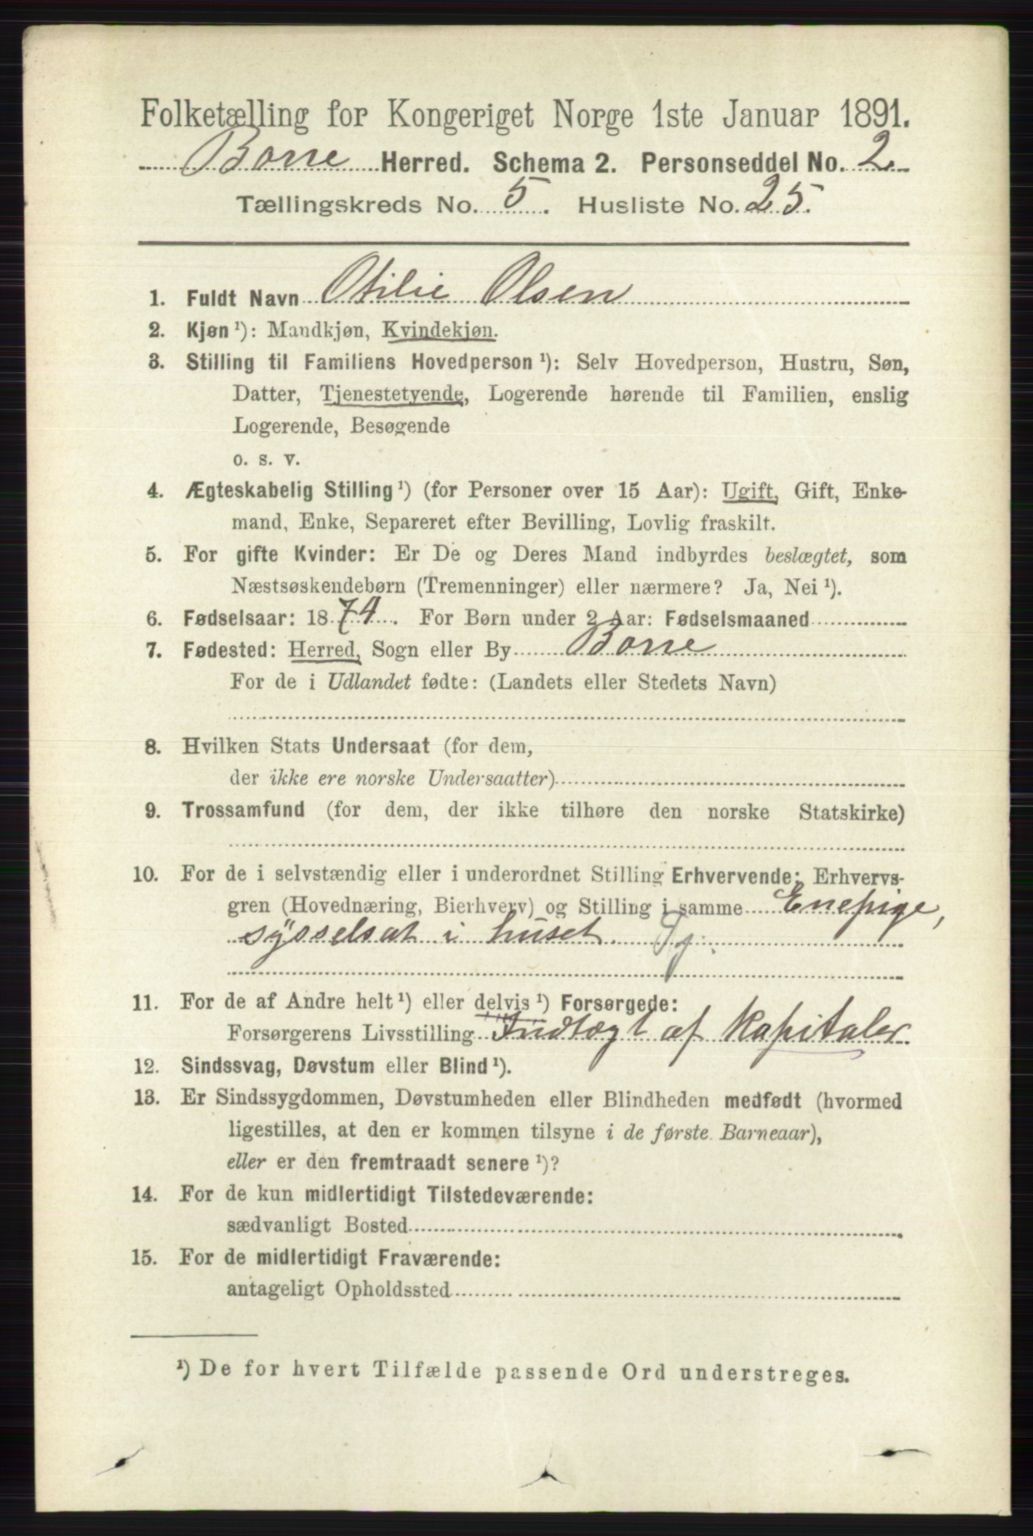 Folketælling for Kongeriget Norge 1ste Januar 1891.
Borre Herred. Schema 2. Personseddel No. 2.
Tællingskreds No. 5. Husliste No. 25.
1. Fuldt Navn Otilie Olsen
2. Kjøn ¹): Mandkjøn, Kvindekjøn.
3. Stilling til Familiens Hovedperson ¹): Selv Hovedperson, Hustru, Søn,
Datter, Tjenestetyende, Logerende hørende til Familien, enslig
Logerende, Besøgende
o. s. v.
4. Ægteskabelig Stilling ¹) (for Personer over 15 Aar): Ugift, Gift, Enke-
mand, Enke, Separeret efter Bevilling, Lovlig fraskilt.
5. For gifte Kvinder: Er De og Deres Mand indbyrdes beslægtet, som
Næstsøskendebørn (Tremenninger) eller nærmere? Ja, Nei ¹).
6. Fødselsaar: 1874. For Børn under 2 Aar: Fødselsmaaned
7. Fødested: Herred, Sogn eller By Borre
For de i Udlandet fødte: (Landets eller Stedets Navn)
8. Hvilken Stats Undersaat (for dem,
der ikke ere norske Undersaatter)
9. Trossamfund (for dem, der ikke tilhøre den norske Statskirke)
10. For de i selvstændig eller i underordnet Stilling Erhvervende: Erhvervs-
gren (Hovednæring, Bierhverv) og Stilling i samme Enepige,
sysselsat i huset. Tj.
11. For de af Andre helt ¹) eller delvis ¹) Forsørgede:
Forsørgerens Livsstilling Indtægt af Kapitaler
12. Sindssvag, Døvstum eller Blind ¹).
13. Er Sindssygdommen, Døvstumheden eller Blindheden medfødt (hvormed
ligestilles, at den er kommen tilsyne i de første Barneaar),
eller er den fremtraadt senere ¹)?
14. For de kun midlertidigt Tilstedeværende:
sædvanligt Bosted
15. For de midlertidigt Fraværende:
antageligt Opholdssted
¹) De for hvert Tilfælde passende Ord understreges.